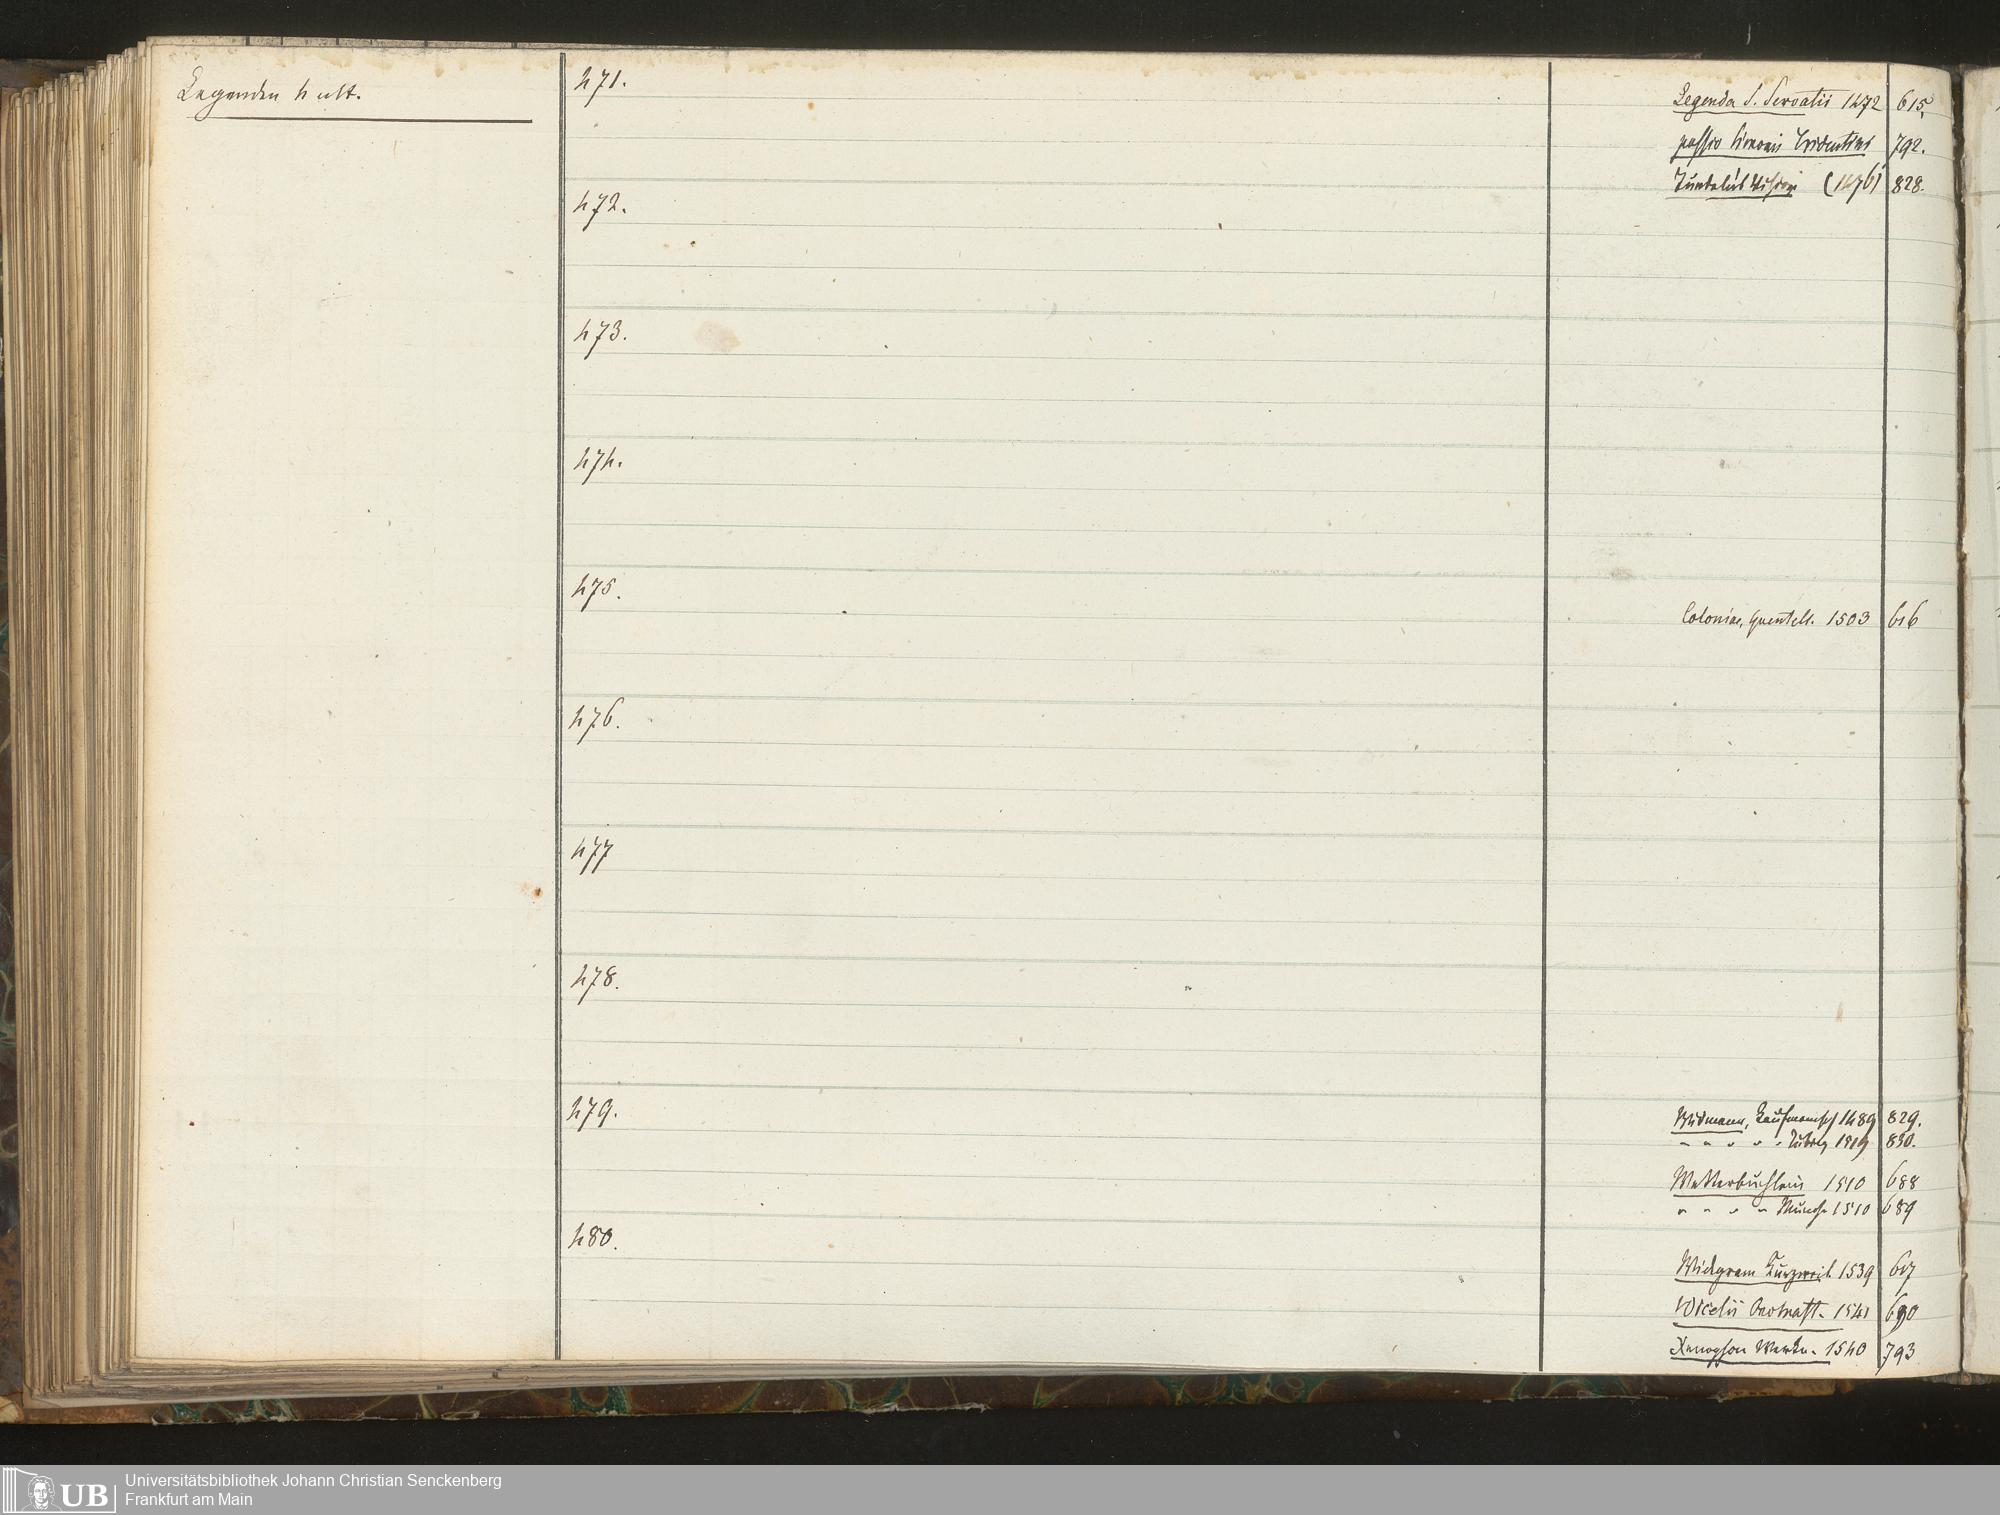 Legenden h
471.
Legenda S. Servatii 1472 615.
passio Simonis Tridentini 792.
Tundalus Vision (1476) 828.
472.
473.
474.
475.
Coloniae, Quentell. 1503 616
476.
477
478.
479.
Widmann, Kaufmansch 1489 829.
" " " " " 1519 830.
Wetterbuchlein 1510 688
" " " " Münch. 1510 689
480.
Wickgram Kurzweil 1539 617
Wicelii Onomast. 1541 690
Xenophon Werke. 1540 793
Universitätsbibliothek Johann Christian Senckenberg
Frankfurt am Main
UB